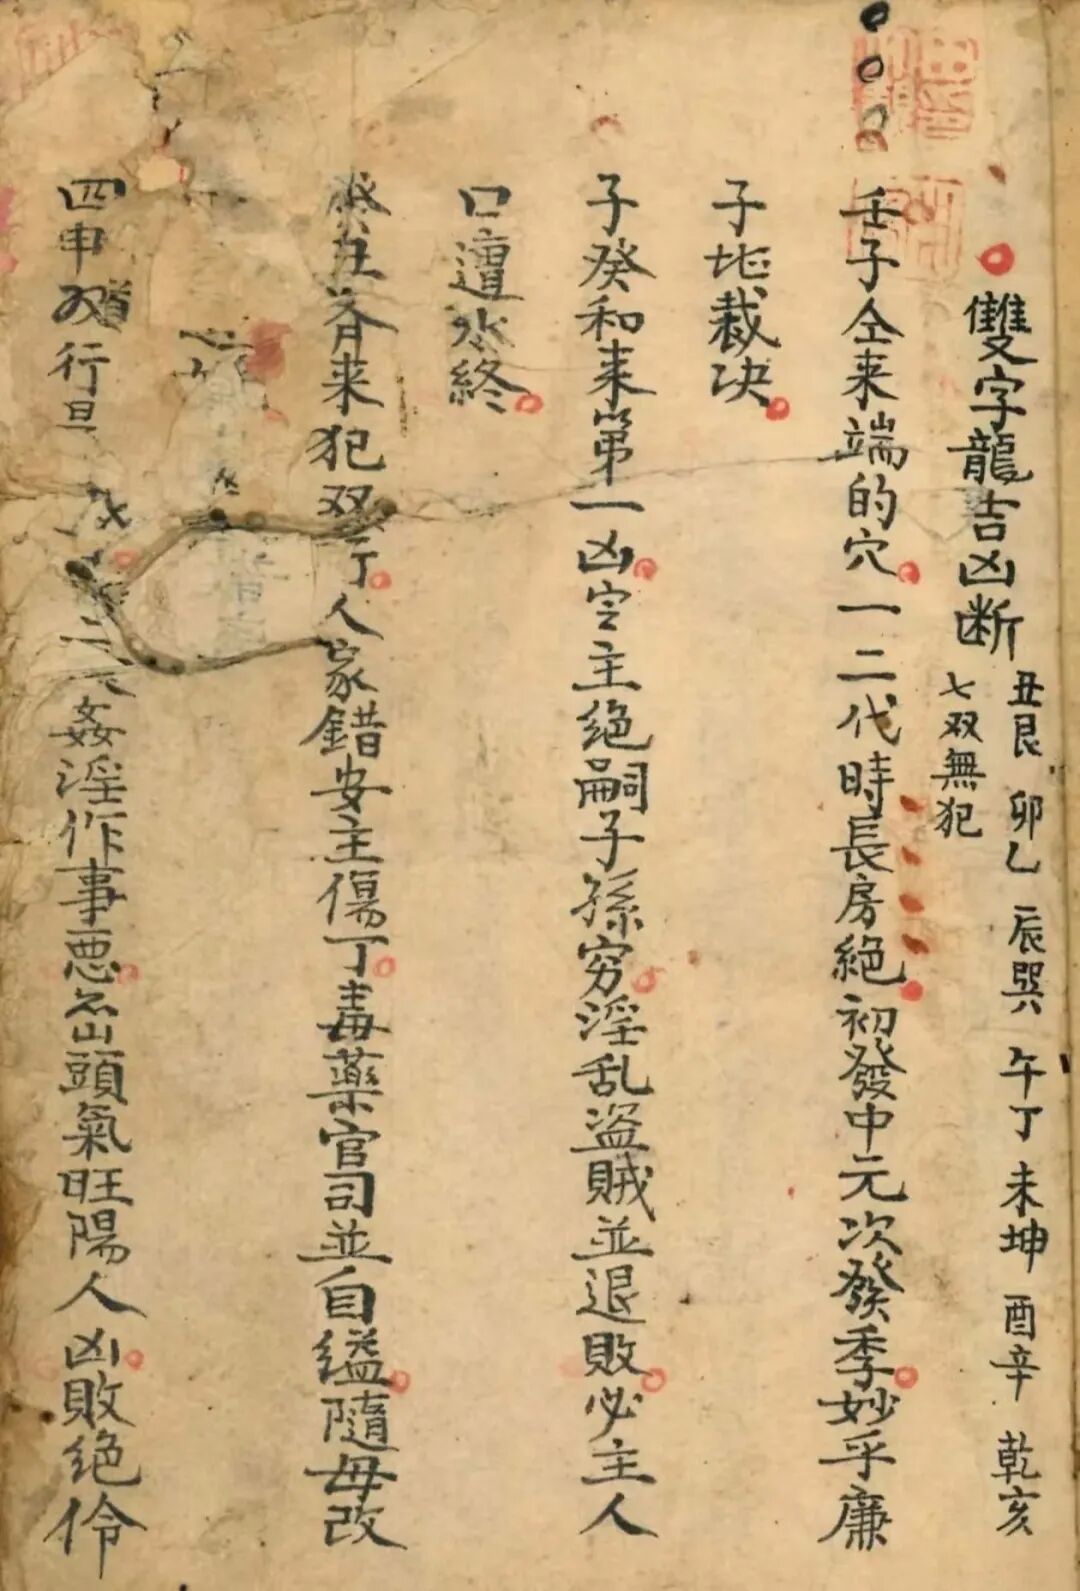 雙字龍吉凶断
丑艮 卯乙 辰巽 午丁 未坤 酉辛 乾亥
七双無犯
壬子仝来端的穴一二代時長房絕初發中元次發季妙乎廉
子地裁决
子癸和来第一凶定主绝嗣子孫穷淫乱盗賊並退敗必主人
口遭水終
癸丑斉来犯双丁人家錯安主傷丁毒藥官司並自縊隨母改
四申双行旦 姦淫作事惡 山頭氣旺陽人凶敗绝伶